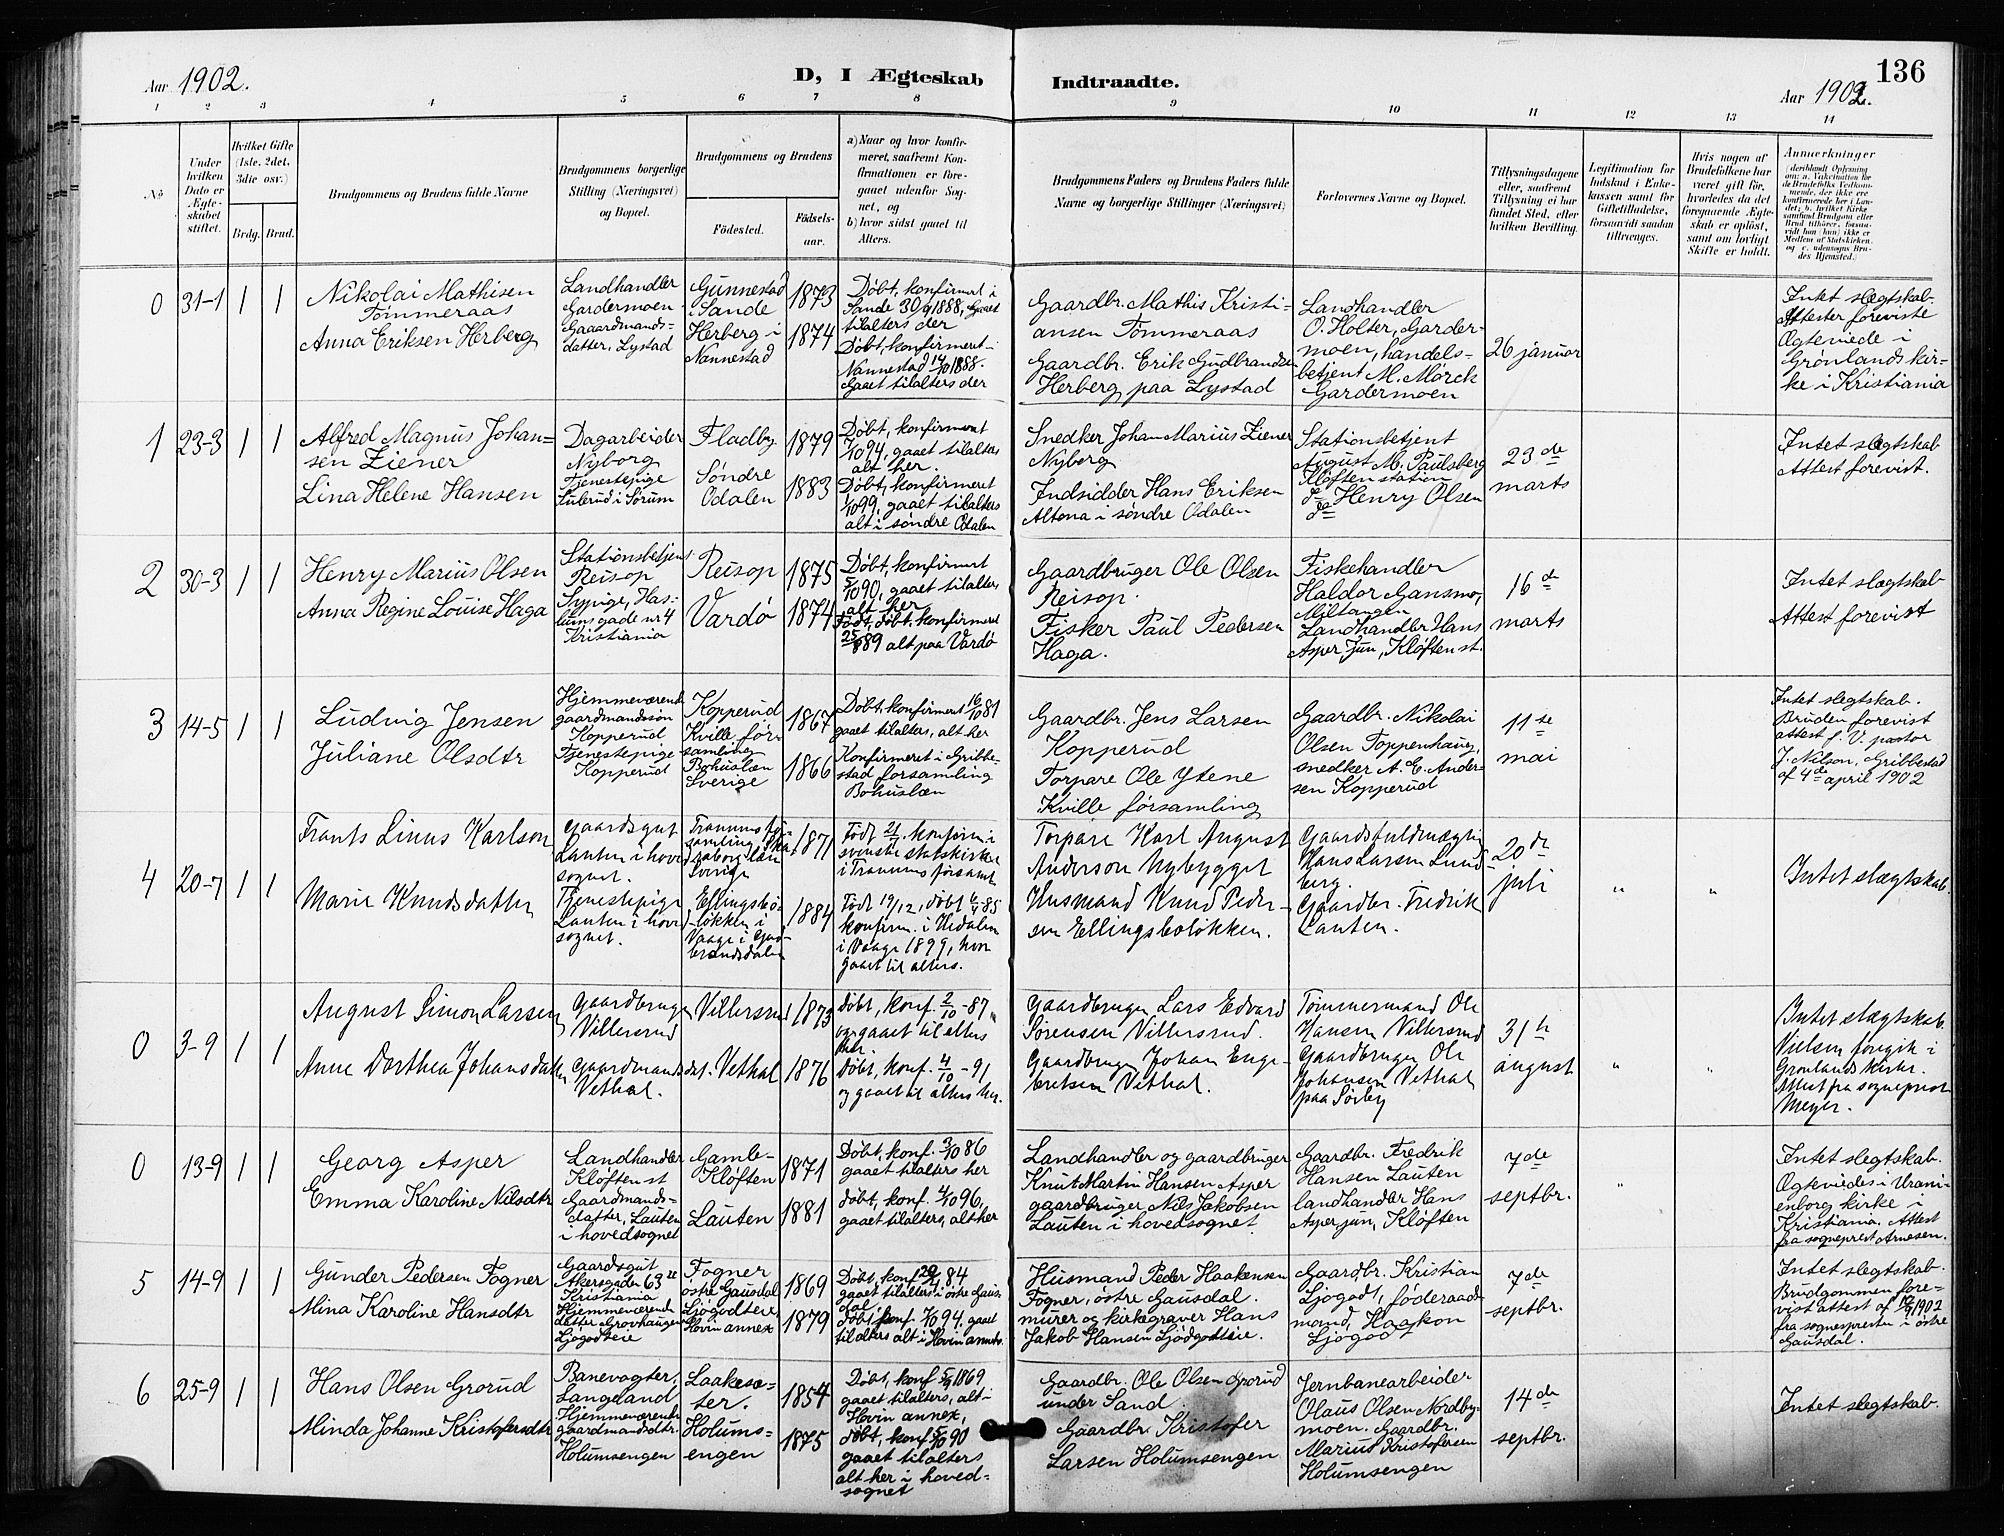 Aar 1902.
D, I Ægteskab
Indtraadte.
136
Aar 1902.
1 2 3 4 5 6 7 8 9 10 11 12 13 14
No
Under
hvilken
Dato er
Ægte-
skabet
stiftet.
Hvilket Gifte
(1ste, 2det,
3die osv.)
Brdg. Brud.
Brudgommens og Brudens fulde Navne
Brudgommens borgerlige
Stilling (Næringsvei)
og Bopæl.
Brudgommens og Brudens
Födested.
Födsels-
aar.
a) Naar og hvor konfir-
meret, saafremt Kon-
firmationen er fore-
gaaet udenfor Sog-
net, og
b) hvor sidst gaaet til
Alters.
Brudgommens Faders og Brudens Faders fulde
Navne og borgerlige Stillinger (Næringsvei)
Forlovernes Navne og Bopæl.
Tillysningsdagene
eller, saafremt
Tillysning ei har
fundet Sted, efter
hvilken Bevilling.
Legitimation for
Indskud i Enke-
kassen samt for
Giftetilladelse,
forsaavidt saadan
tiltrænges.
Hvis nogen af
Brudefolkene har
været gift för,
hvorledes da det
foregaaende Ægte-
skab er oplöst,
samt om lovligt
Skifte er holdt.
Anmerkninger
0 31-1 1 1
Nikolai Mathisen
Tömmeraas
Anna Eriksen Herberg
Landhandler
Gardermoen
Gaaardmands-
datter, Lystad
Gunnestad
i Sande
Herberg i
Nannestad
1873
1874
Døbt, konfirmert i
Sande 30/9 1888, Gaaet
tilalters der
Døbt, konfirmeret i
Nannestad 14/10 1888.
Gaaet tilalters der
Gaardbr. Mathis Kristi-
ansen Tömmeraas
Gaardbr. Erik Gudbrandsen
Herberg paa Lystad
Landhandler
O. Holter, Garder-
moen, handels-
betjent M. Mørck
Gardermoen
26 januar
Intet slægtskab.
Attester foreviste
Ægteviede i
Grønlands kir-
ke i Kristiania
1 23-3 1 1
Alfred Magnus Johan-
sen Ziener
Lina Helene Hansen
Dagarbeider
Nyborg
Tjenestepige
i Sørum
Fladby
Søndre
Odalen
1879
1883
Døbt, konfirmert
1/10 94, gaaet tilalters
alt her.
Døbt, konfirmeret
1/10 99, gaaet tilalters
alt i søndre Odalen
Snedker Johan Marius Ziener
Nyborg
Indsidder Hans Eriksen
Altona i søndre Odalen
Stationsbetjent
August M. Paulsberg
Kløften station
do Henry Olsen
do
23de
marts
Intet slægtskab
Attest forevist.
2 30-3 1 1
Henry Marius Olsen
Anna Regine Louise Haga
Stationsbetjent
Reisop
Sypige, Has-
lums gade nr 4
Kristiania
Reisop
Vardø
1875
1874
Døbt, konfirmert
5/10 90, gaaet tilalters
alt her
Født, døbt, konfirmeret
25/8 89 alt paa Vardø
Gaardbruger Ole Olsen
Reisop.
Fisker Paul Pedersen
Haga.
Fiskehandler
Haldor Gansmo,
Landhandler Hans
Asper jun, Kløften st.
16de
marts
Intet slægtskab
Attest forevist
3 14-5 1 1
Ludvig Jensen
Juliane Olsdtr
Hjemmeværende
gaardmandssön
Kopperud
Tjenestepige
Kopperud
Kopperud
Kville för-
samling
Bohuslæn
Sverige
1867
1866
Døbt, konfirmeret 16/10 81
gaaet tilalters, alt her
Konfirmeret i Gribbe-
stad forsamling
Bohuslæn
Gaardbr. Jens Larsen
Kopperud
Torpare Ole Ytene
Kville församling
Gaardbr. Nikolai
Olsen Toppenhaug,
snedker A. E. Ander-
sen Kopperud
11te
mai
Intet slegtskab.
Bruden forevist
attest f. V. pastor
J. Nilson, Gribbestad
af 4de april 1902
4 20-7 1 1
Frants Linus Karlson
Marie Knudsdatter
Gaardsgut
Lauten i hoved
sognet.
Tjenestepige
Lauten i hoved
sognet.
Tranums för-
samling, Ska-
raborg län
Sverige
Ellingsbø-
løkken i
Vaage i Gud-
brandsdalen
1871
1884
Født 21/ konfirm i
svenske statskirke
i Tranums församl.
Født 19/12, døbt 6/4 85
konfirm. i Hedalen
i Vaage 1899, hvor
gaaet til alters.
Torpare Karl August
Anderson Nybygget
Husmand Knud Peder-
sen Ellingsbøløkken.
Gaardsfuldmægtig
Hans Larsen Lund
berg.
Gaardbr. Fredrik
Lauten.
20de
juli
" "
Intet slægtskab.
0 3-9 1 1
August Simon Larsen
Anne Dorthea Johansdatter
Gaardbruger
Villersrud
Gaardmands
Vethal.
Villersrud
dat. Vethal
1873
1876
Døbt, konf. 2/10 -87
og gaaet til alters
her.
Døbt, konf. 4/10 -91
og gaaet til alters her.
Gaardbruger Lars Edvard
Sørensen Villersrud.
Gaardbruger Johan Enge-
bretsen Vethal.
Tømmermand Ole
Hansen Villersrud
Gaardbruger Ole
Johansen Vethal
paa Sörby
31te
august
" "
Intet slægtskab.
Vielsen foregik i
Grønlands kirke.
Attest fra sogneprest
Meyer.
0 13-9 1 1
Georg Asper
Emma Karoline Nilsdtr
Landhandler
Kløften st
Gaardmands-
datter, Lauten
i hovedsognet
Gamle-
Kløften
Lauten
1871
1881
Døbt, konf. 3/10 86
gaaet tilalters her
Døbt, konf. 4/10 96,
gaaet tilalters, alt her
Landhandler og gaardbruger
Knut Martin Hansen Asper
gaardbruger Nils Jakobsen
Lauten i hovedsognet
Gaardbr. Fredrik
Hansen Lauten
landhandler Hans
Asper jun, Kløften
7de
septbr.
"
Intet slegtskab.
Ægteviedes i Urani-
enborg kirke i
Kristiania. Attest
fra sogneprest Arnesen.
5 14-9 1 1
Gunder Pedersen Fogner
Mina Karoline Hansdtr
Gaardsgut
Akersgaden 63
Kristiania
Hjemmeværende
datter Grovhaugen
Ljøgodteie
Fogner
østre Gausdal
Ljögodteie
Hovin annex
1869
1879
Døbt, konf 29/ 84
gaaet tilalters i østre Gaus-
dal
Døbt, konf. 7/10 94, gaaet
tilalters alt i Hovin annex.
Husmand Peder Haakensen
Fogner, østre Gausdal.
murer og kirkegraver Hans
Jakob Hansen Ljödgodteie.
Gaardbr. Kristian
Ljögodt, föderaads
mand, Haakon
Ljögodt
7de
septbr.
Intet slegtskab.
Brudgommen fore-
vist attest af 1902
fra sognepresten i østre
Gausdal.
6 25-9 1 1
Hans Olsen Grorud
Minda Johanne Kristofersdtr
Banevogter,
Langeland
Hjemmeværende
gaardmandsdtr.
Holumsengen
Laakesæ-
ter.
Holums-
engen
1854
1875
Døbt, konf 1869
gaaet tilalters, alt i
Hovin annex,
døbt, konf 5/10 90
gaaet tilalters
alt her i hoved-
sognet
Gaardbr. Ole Olsen Grorud
under Sand
Gaardbr. Kristofer
Larsen Holumsengen
Jernbanearbeider
Olaus Olsen Nordby-
moen. Gaardbr.
Marius Kristofersen
Holumsengen
14de
septbr.
Intet slegtskab.